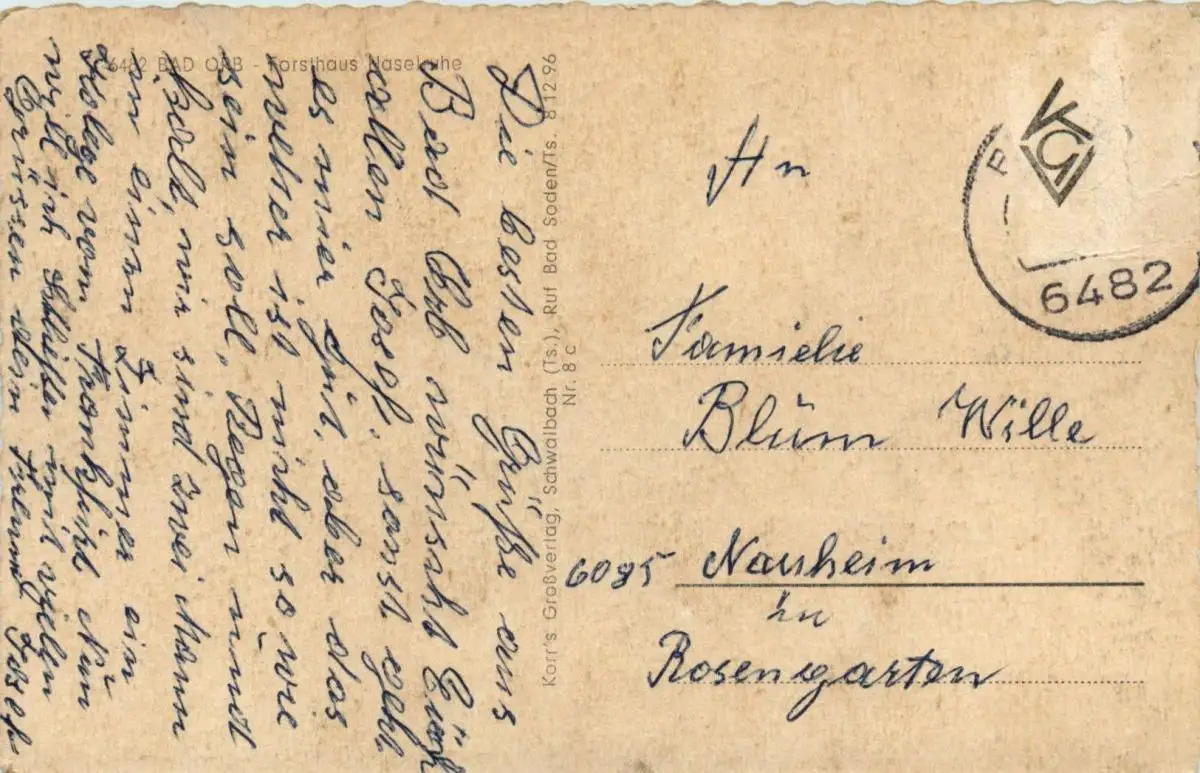 6482 BAD ORB - Forsthaus Haselruhe
Die besten Grüße aus
Bad Orb wünscht Eüch
allen Josef, sonst geht
es mier gut, aber das
wetter ist nicht so wie
sein soll, Regen und
kalt, wir sind zwei Mann
in einen Zimmer ein
Kolege vom Frankfürt Nün
will ich schließen mit vielen
Grüssen dein Freund Josef
Korr's Großverlag, Schwalbach (Ts.), Ruf Bad Soden/Ts. 8 12 96
Nr. 8 c
KG
6482
An
Familie
Blüm Wille
6085 Nauheim
in
Rosengarten